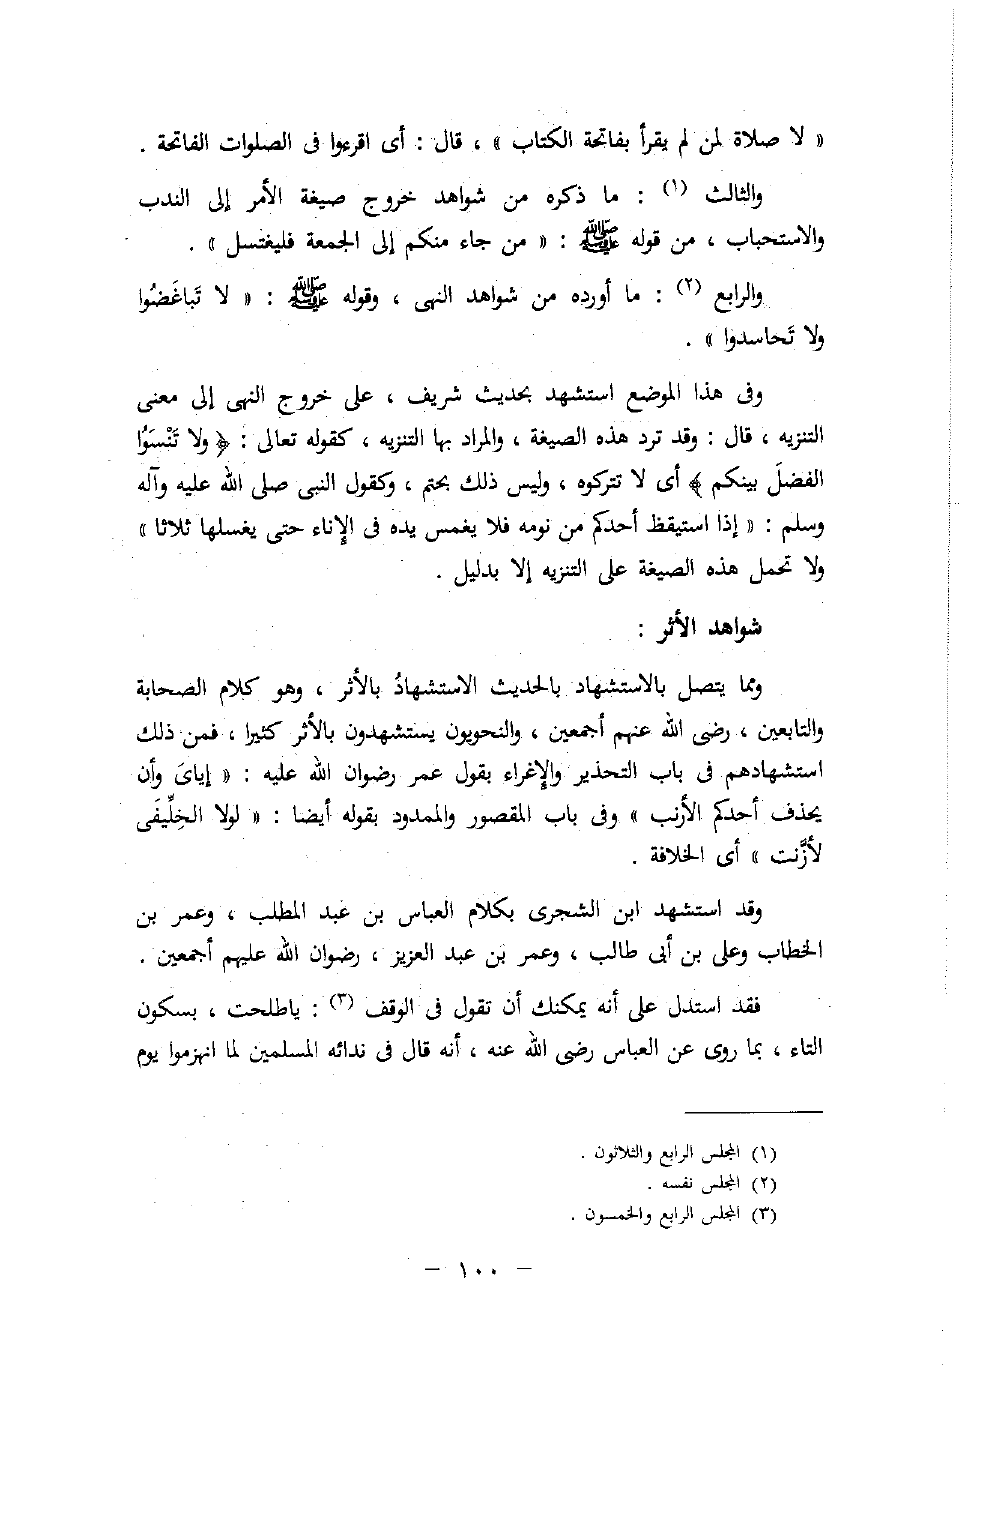 « لا صلاة لمن لم يقرأ بفاتحة الكتاب » ، قال : أى اقرءوا فى الصلوات الفاتحة .
والثالث (١) : ما ذكره من شواهد خروج صيغة الأمر إلى الندب
والاستحباب ، من قوله ﷺ : « من جاء منكم إلى الجمعة فليغتسل » .
والرابع (٢) : ما أورده من شواهد النهى ، وقوله ﷺ : « لا تَباغَضُوا
ولا تَحاسدوا » .
وفى هذا الموضع استشهد بحديث شريف ، على خروج النهى إلى معنى
التنزيه ، قال : وقد ترد هذه الصيغة ، والمراد بها التنزيه ، كقوله تعالى : ﴿ ولا تَنْسَوُا
الفضلَ بينكم ﴾ أى لا تتركوه ، وليس ذلك بحتم ، وكقول النبى صلى الله عليه وآله
وسلم : « إذا استيقظ أحدكم من نومه فلا يغمس يده فى الإناء حتى يغسلها ثلاثا »
ولا تحمل هذه الصيغة على التنزيه إلا بدليل .
شواهد الأثر :
ومما يتصل بالاستشهاد بالحديث الاستشهادُ بالأثر ، وهو كلام الصحابة
والتابعين ، رضى الله عنهم أجمعين ، والنحويون يستشهدون بالأثر كثيرا ، فمن ذلك
استشهادهم فى باب التحذير والإغراء بقول عمر رضوان الله عليه : « إياىَ وأن
يحذف أحدكم الأرنب » وفى باب المقصور والممدود بقوله أيضا : « لولا الخِلِّيفَى
لأذَّنت » أى الخلافة .
وقد استشهد ابن الشجرى بكلام العباس بن عبد المطلب ، وعمر بن
الخطاب وعلى بن أبى طالب ، وعمر بن عبد العزيز ، رضوان الله عليهم أجمعين .
فقد استدل على أنه يمكنك أن تقول فى الوقف (٣) : ياطلحت ، بسكون
التاء ، بما روى عن العباس رضى الله عنه ، أنه قال فى ندائه المسلمين لما انهزموا يوم
(١) المجلس الرابع والثلاثون .
(٢) المجلس نفسه .
(٣) المجلس الرابع والخمسون .
– ١٠٠ –